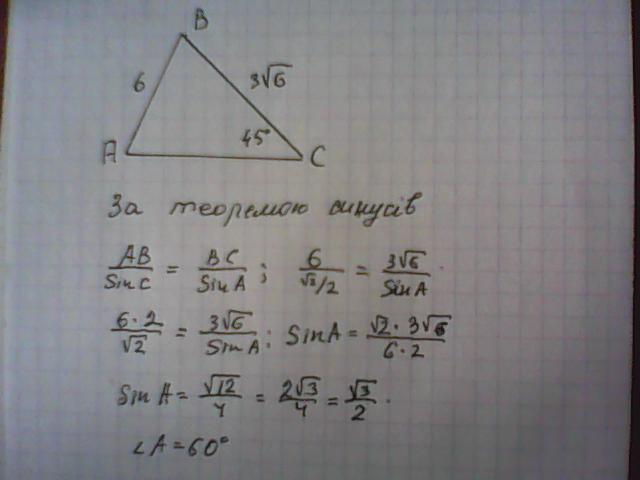 B
6
3√6
45°
A
C
За теоремою синусів
AB/Sin C = BC/Sin A ; 6/(√2/2) = 3√6/Sin A .
6·2/√2 = 3√6/Sin A ; Sin A = √2·3√6/6·2
Sin A = √12/4 = 2√3/4 = √3/2 .
∠A = 60°